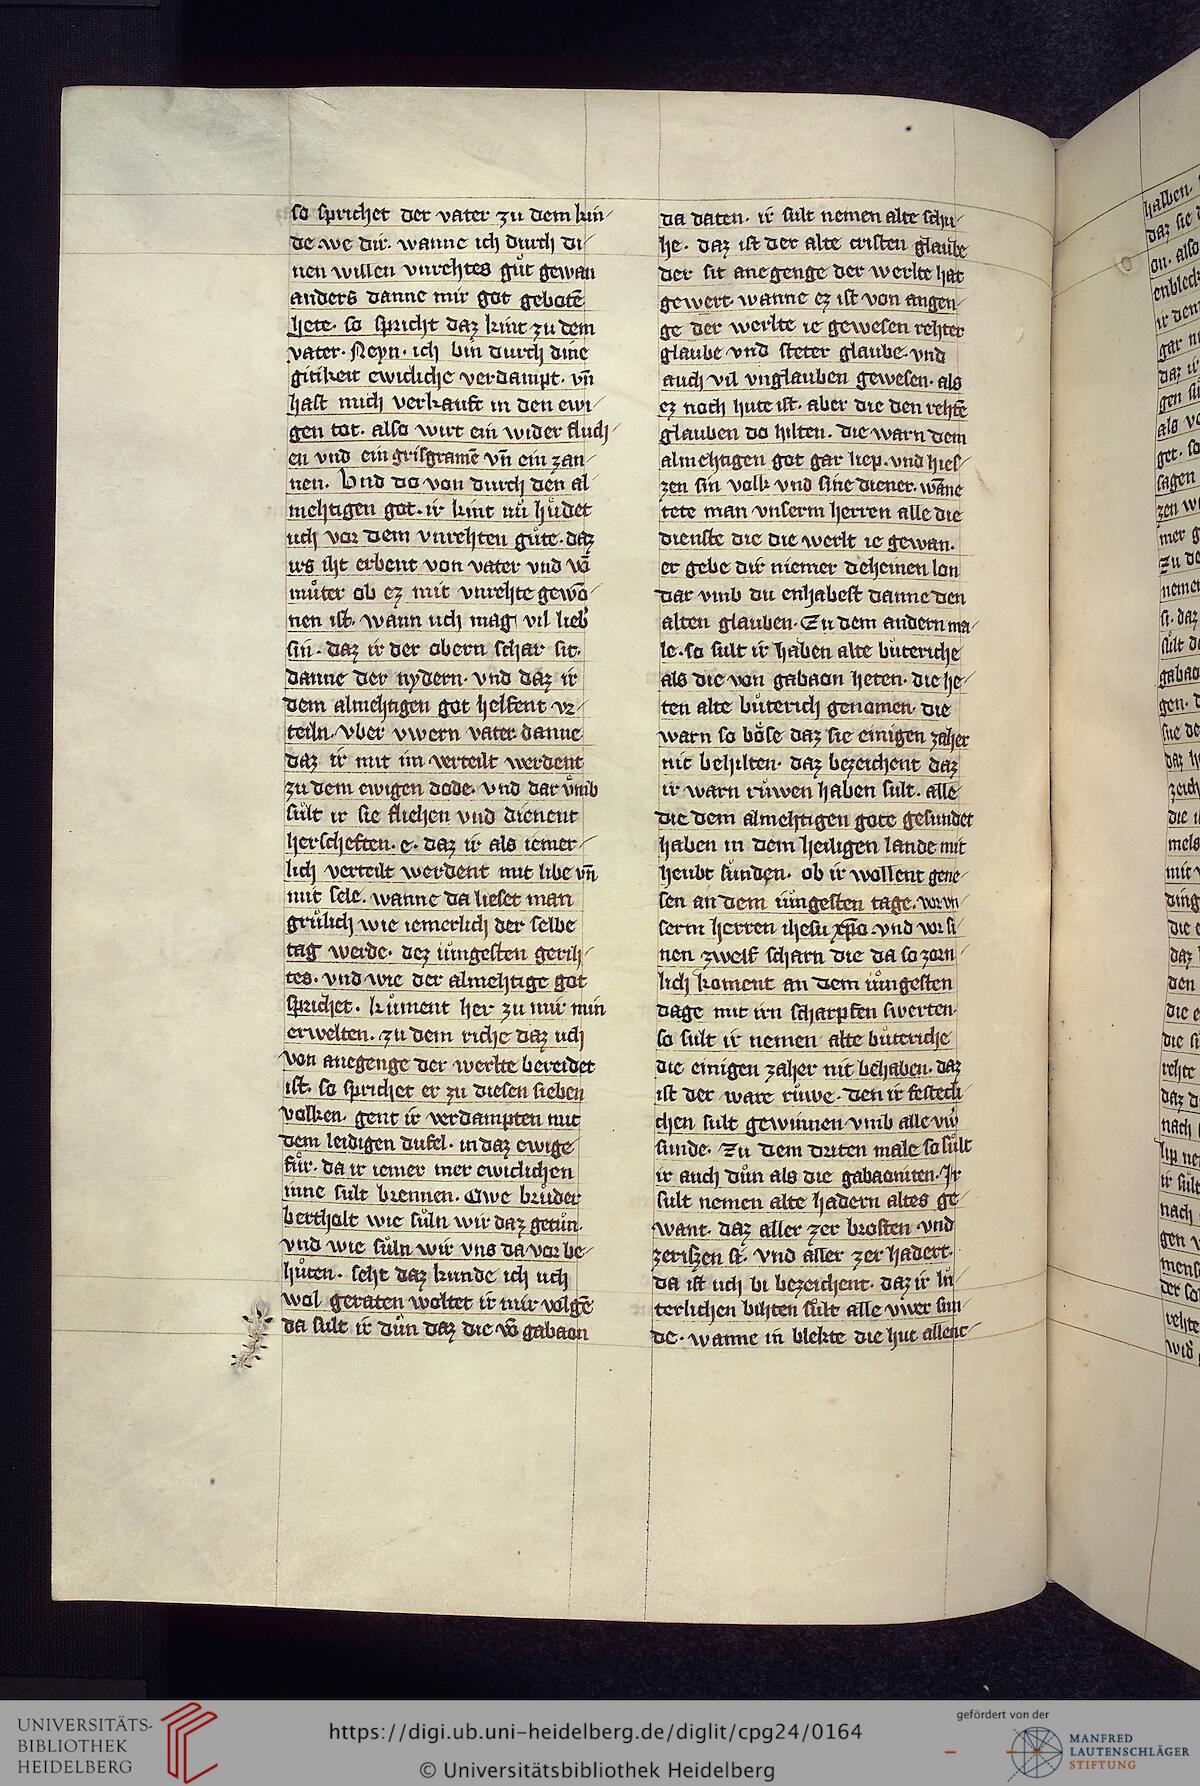 so sprichet der vater zu dem kin-
de. we dir. wanne ich durch di-
nen willen vnrehtes gůt gewan
anders danne mir got gebotē
hete. so spricht daz kint zu dem
vater. Neyn. ich bin durch dine
gitikeit ewicliche verdampt. vn̄
hast mich verkauft in den ewi-
gen tot. also wirt ein wider fluch-
en vnd ein grisgramē vn̄ ein zan-
nen. Vnd do von durch den al-
mehtigen got. ir kint nů hůdet
uch vor dem vnrehten gůte. daz
irs iht erbent von vater vnd vō
můter ob ez mit vnrehte gewō-
nen ist. wann uch mag vil lieb
sin. daz ir der obern schar sit.
danne der nydern. vnd daz ir
dem almehtigen got helfent vr-
teiln. vber vwern vater danne
daz ir mit im verteilt werdent
zu dem ewigen dode. vnd dar vmb
sůlt ir sie fliehen vnd dienent
herscheften. e. daz ir als iemer-
lich verteilt werdent mit libe vn̄
mit sele. wanne da lieset man
grůlich wie iemerlich der selbe
tag werde. dez iůngesten gerih-
tes. vnd wie der almehtige got
sprichet. kůment her zu mir min
erwelten. zu dem riche daz uch
von anegenge der werlte bereidet
ist. so sprichet er zu diesen sieben
volken. gent ir verdampten mit
dem leidigen dufel. in daz ewige
fůr. da ir iemer mer ewiclichen
inne sult brennen. Owe brůder
bertholt wie sůln wir daz getůn.
vnd wie sůln wir vns da vor be-
hůten. seht daz kunde ich uch
wol geraten woltet ir mir volgē
da sult ir důn daz die vō gabaon
da daten. ir sult nemen alte schu-
he. daz ist der alte cristen glaube
der sit anegenge der werlte hat
gewert. wanne ez ist von angen-
ge der werlte ie gewesen rehter
glaube vnd steter glaube. vnd
auch vil vnglauben gewesen. als
ez noch hute ist. aber die den rehtē
glauben do hilten. die warn dem
almehtigen got gar liep. vnd hies-
zen sin volk vnd sine diener. wāne
tete man vnserm herren alle die
dienste die die werlt ie gewan.
er gebe dir niemer deheinen lon
dar vmb du enhabest danne den
alten glauben. Zu dem andern ma-
le. so sult ir haben alte bůteriche
als die von gabaon heten. die he-
ten alte bůterich genomen. die
warn so bőse daz sie einigen zaher
nit behilten. daz bezeichent daz
ir warn růwen haben sult. alle
die dem almehtigen gote gesundet
haben in dem heiligen lande mit
heubt sůnden. ob ir wollent gene-
sen an dem iůngesten tage. vor vn-
serm herren ihesu xp̄o. vnd vor si-
nen zwelf scharn die da so zorn-
lich koment an dem iůngesten
dage mit irn scharpfen swerten.
so sult ir nemen alte bůteriche
die einigen zaher nit behaben. daz
ist der ware růwe. den ir festecli-
chen sult gewinnen vmb alle vw̄
sunde. Zu dem driten male so sůlt
ir auch důn als die gabaoniten. Ir
sult nemen alte hadern altes ge-
want. daz aller zer brosten vnd
zerissen si. vnd aller zer hadert.
da ist uch bi bezeichent. daz ir lů-
terlichen bihten sůlt alle vwer sun-
de. wanne in blekte die hut allent-